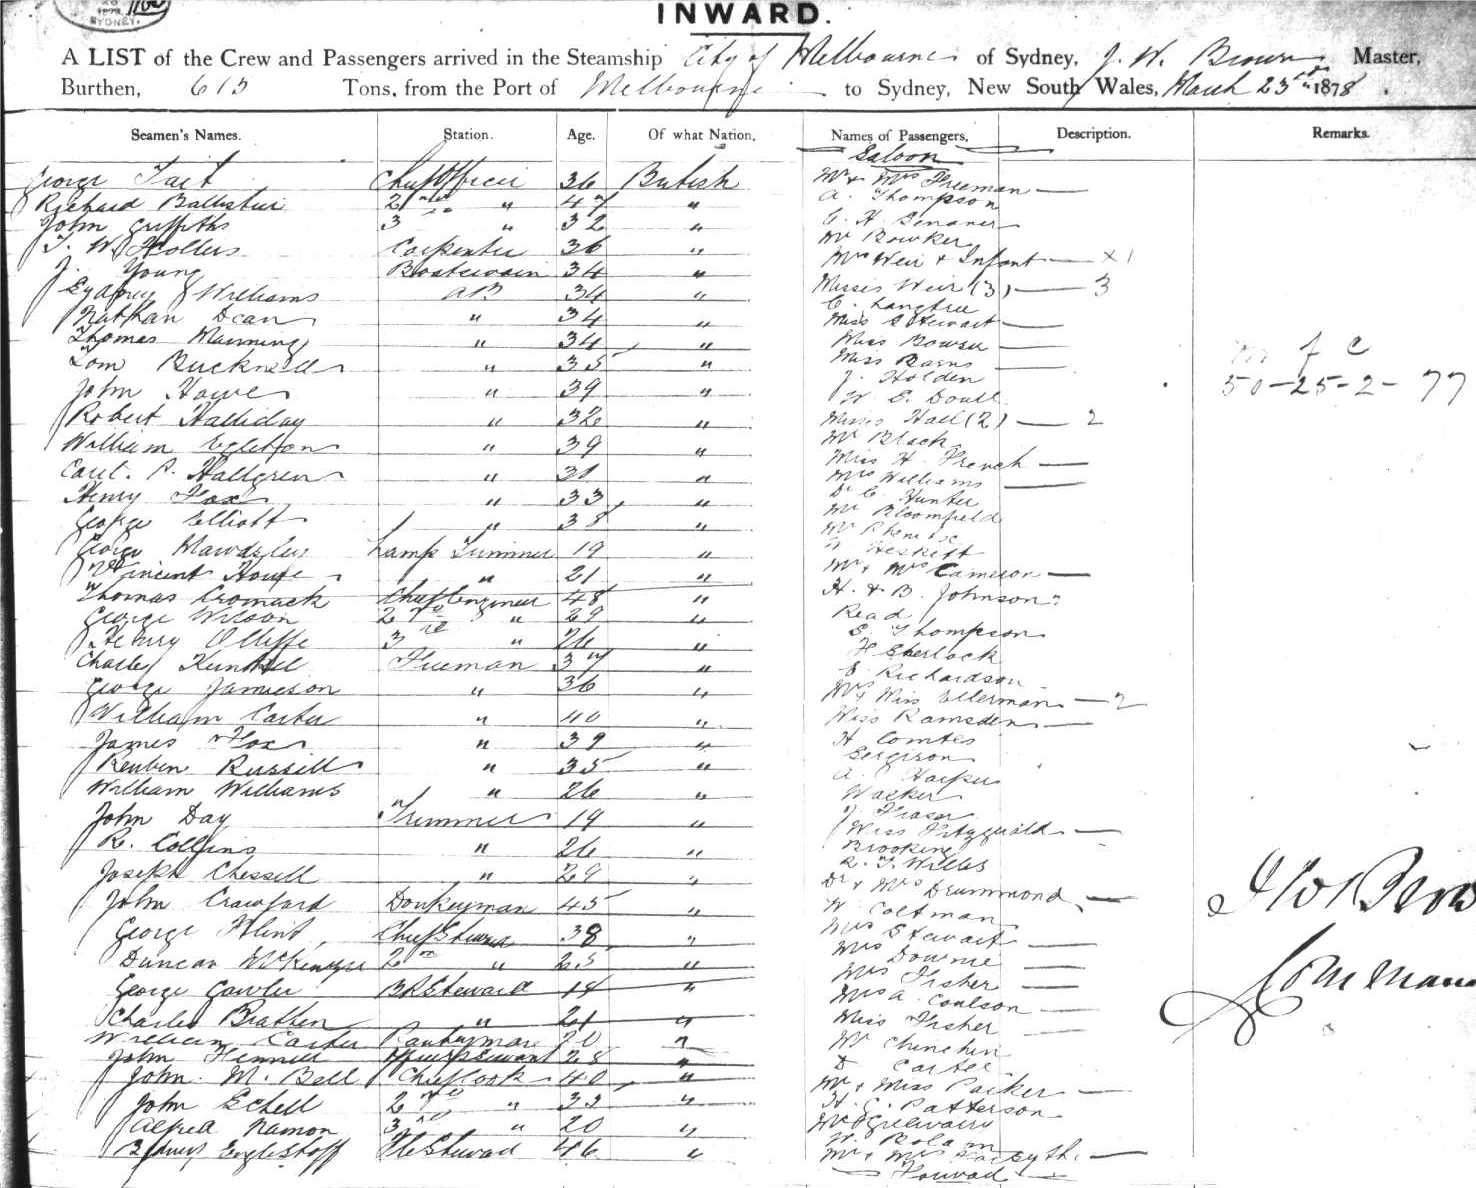 SYDNEY
INWARD.
A LIST of the Crew and Passengers arrived in the Steamship City of Melbourne of Sydney, J. W. Brown Master,
Burthen, 613 Tons, from the Port of Melbourne to Sydney, New South Wales, March 23rd 1878.
Seamen's Names. Station. Age. Of what Nation. Names of Passengers. Description. Remarks.
Saloon
George Tait Chief Officer 36 British
Richard Ballister 2nd " 47 "
John Griffiths 3 " 32 "
T. W. Hollers Carpenter 36 "
J. Young Boatswain 34 "
Sydney Williams AB 34 "
Nathan Dean " 34 "
Thomas Manning " 34 "
Tom Bucknell " 35 "
John Howe " 39 "
Robert Halliday " 32 "
William Egleton " 39 "
P. Hallgren " 31 "
Henry Fox " 33 "
George Elliott " 38 "
George Mawdsley Lamp Trimmer 19 "
Vincent House " 21 "
Thomas Cromack Chief Engineer 48 "
George Wilson 2nd " 29 "
Henry Olliffe 3rd " 26 "
Charles Fireman 37 "
George Jamieson " 36 "
William Carter " 40 "
James Fox " 39 "
Reuben Russell " 35 "
William Williams " 26 "
John Day Trimmer 19 "
R. Collins " 26 "
Joseph Chessell " 29 "
John Crawford Donkeyman 45 "
George Flint Chief Steward 38 "
Duncan McKenzie 2nd " 25 "
George Gawler B R Steward 18 "
Charles Bratten " 21 "
William Carter Pantryman 20 "
John 28 "
John M. Bell Chief Cook 40 "
John Echell 2nd " 33 "
Alfred Namon 3rd " 20 "
Steward 46 "
Mr & Mrs Freeman
A. Thompson
Mr Bowker
Mrs Weir & Infant x 1
Misses Weir (3) 3
C. Langtree
Miss S Stewart
Miss Bowen
Miss Barns
J. Holden
W. E. Doull
Misses Hall (2) 2
Mr Black
Miss H. French
Mrs Williams
Dr C. Hunter
Mr Bloomfield
Mr
Heskett
Mr & Mrs Cameron
H. & B. Johnson
Read
E. Thompson
H Sherlock
E. Richardson
Mrs Miss Ellerman 2
Miss Ramsden
H Comtes
Sergison
A. Harper
Walker
J. Fraser
Miss Fitzgerald
Brookine
R. T. Willis
Dr & Mrs Drummond
W. Coltman
Mrs Stewart
Mrs Downie
Mrs Fisher
Mrs A. Coulson
Miss Fisher
Mr Chinchin
D Carter
Mr & Miss Parker
H. C. Patterson
Mr
W. Bolam
Mr & Mrs Forsyth
Forward
m f c
50-25-2-77
J W Brow
Comman